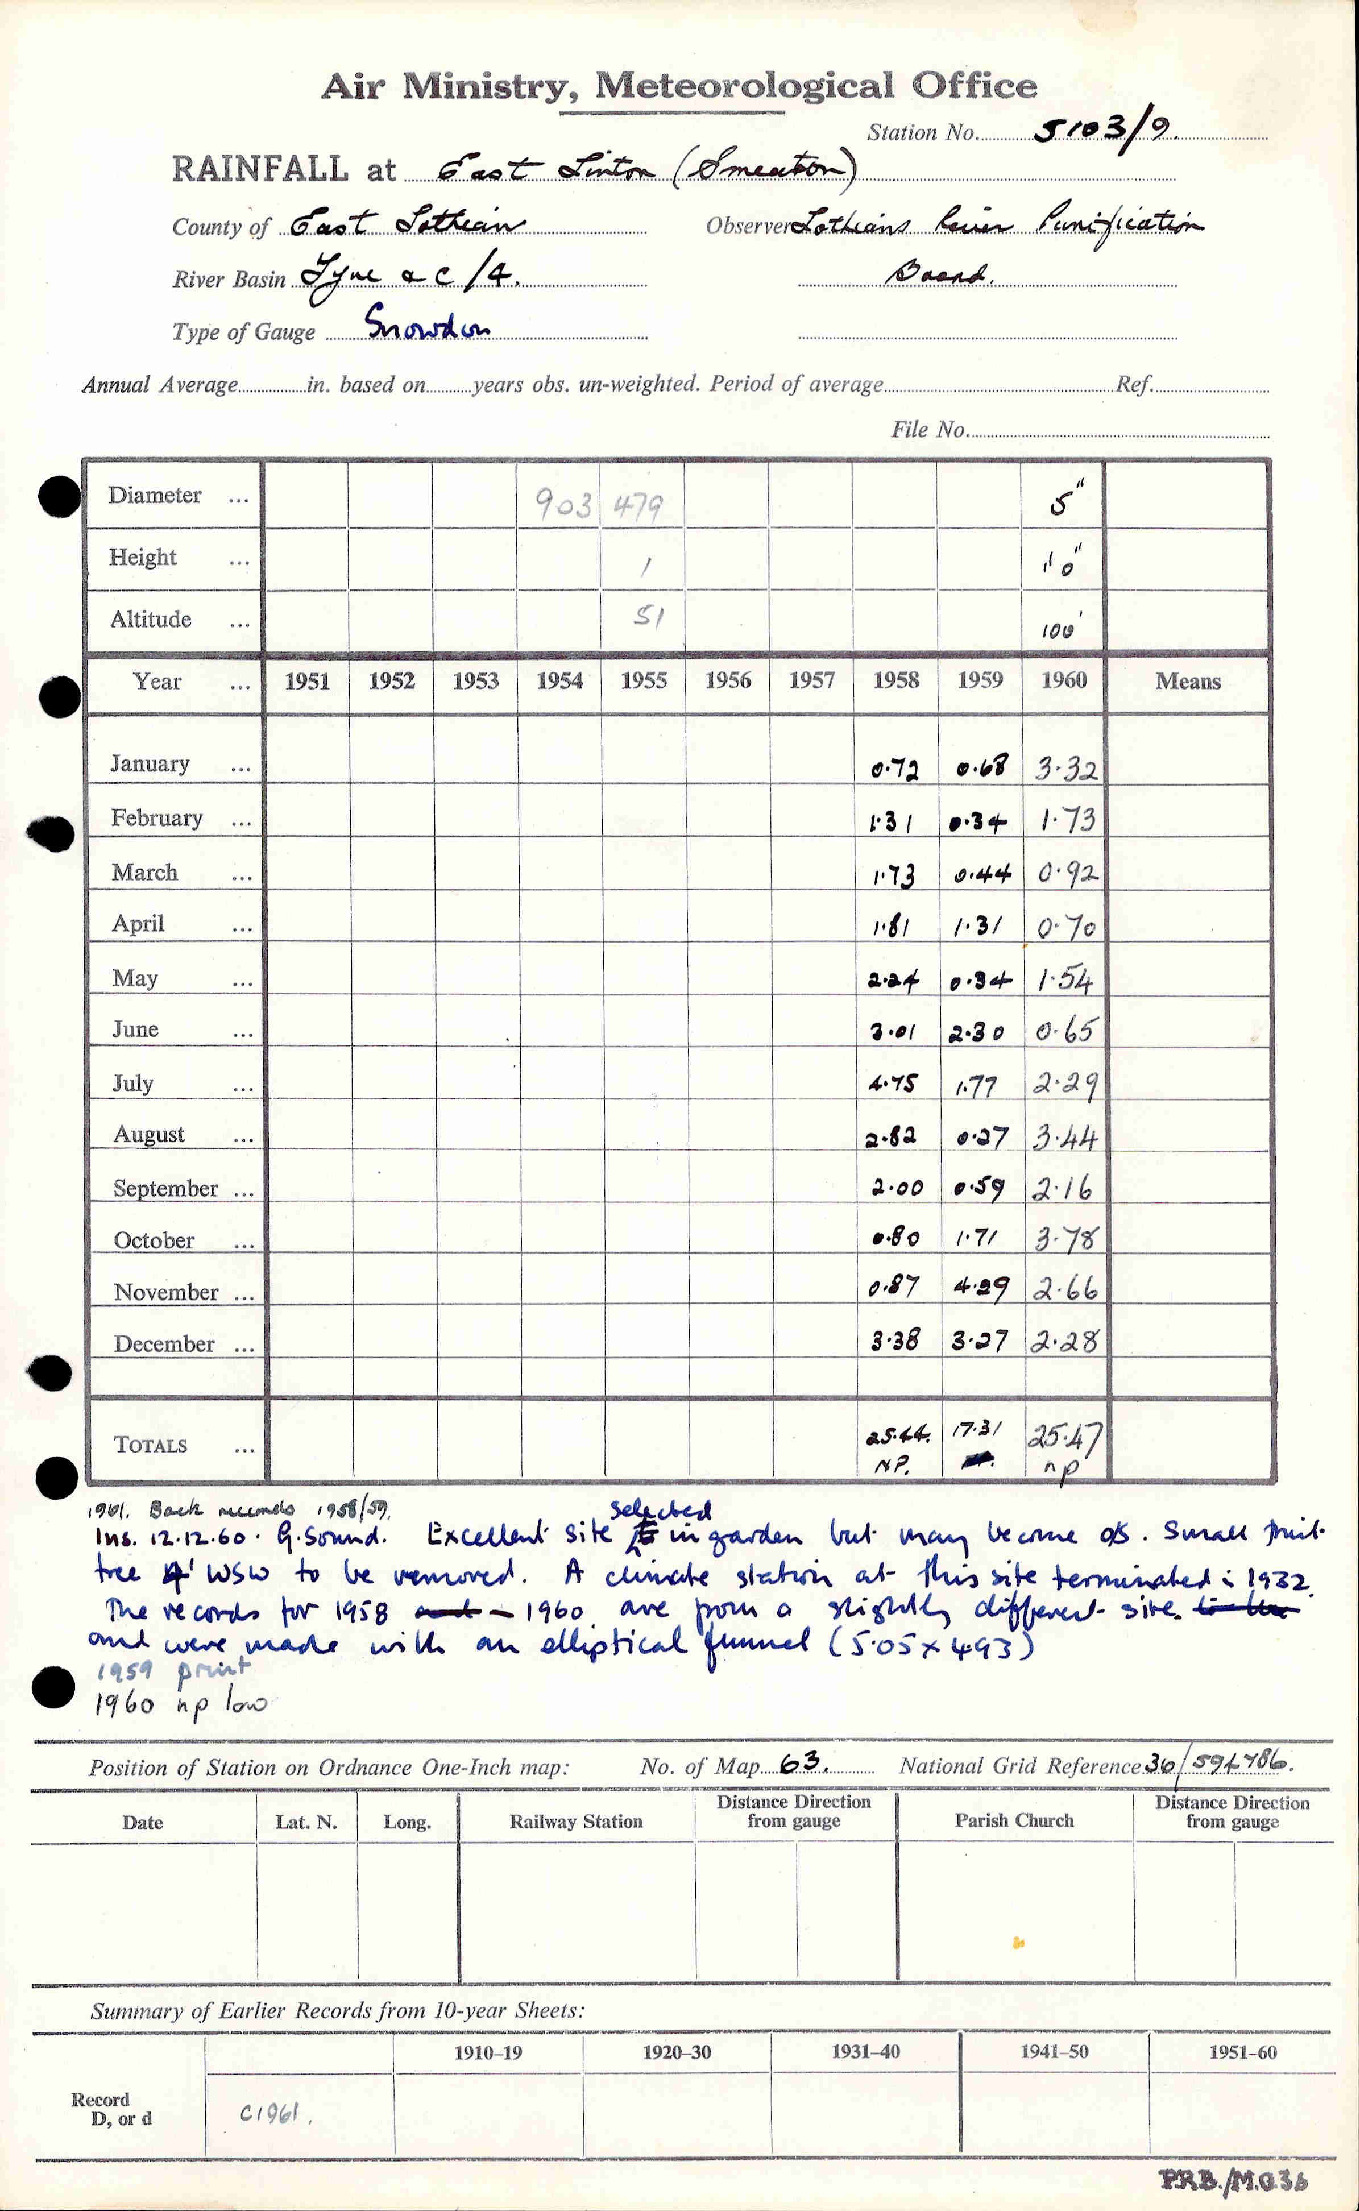 Air Ministry, Meteorological Office
Station No. 5103/9.
RAINFALL at East Linton (Smeaton)
County of East Lothian Observer Lothians River Purification
River Basin Tyne &c/4. Board.
Type of Gauge Snowdon
Annual Average in. based on years obs. un-weighted. Period of average Ref.
File No.
Diameter ... 903 479 5"
Height ... 1 1'0"
Altitude ... 51 100'
Year ... 1951 1952 1953 1954 1955 1956 1957 1958 1959 1960 Means
January ... 0.72 0.68 3.32
February ... 1.31 0.34 1.73
March ... 1.73 0.44 0.92
April ... 1.81 1.31 0.70
May ... 2.24 0.34 1.54
June ... 3.01 2.30 0.65
July ... 4.75 1.77 2.29
August ... 2.82 0.27 3.44
September ... 2.00 0.59 2.16
October ... 0.80 1.71 3.78
November ... 0.87 4.29 2.66
December ... 3.38 3.27 2.28
TOTALS ... 25.44. 17.31 25.47
NP. np
1961. Back records 1958/59.
Ins. 12.12.60. G. Sound. Excellent site selected in garden but may become o/s. Small fruit
tree 4' WSW to be removed. A climate station at this site terminated in 1932.
The records for 1958 - 1960 are from a slightly different site
and were made with an elliptical funnel (5.05 x 4.93)
1959 print
1960 np low
Position of Station on Ordnance One-Inch map: No. of Map 63. National Grid Reference 36/594786.
Date Lat. N. Long. Railway Station Distance Direction from gauge Parish Church Distance Direction from gauge
Summary of Earlier Records from 10-year Sheets:
1910-19 1920-30 1931-40 1941-50 1951-60
Record
D, or d C1961.
PRB./M.036